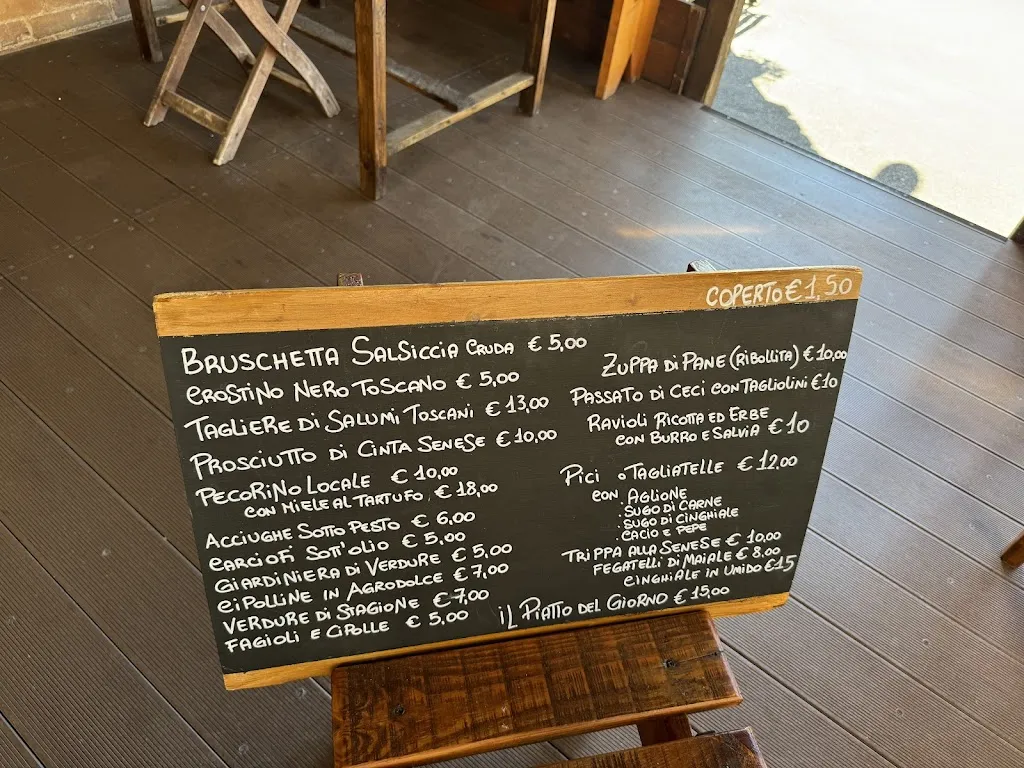 COPERTO € 1,50
BRUSCHETTA SALSICCIA CRUDA € 5,00
CROSTINO NERO TOSCANO € 5,00
TAGLIERE DI SALUMI TOSCANI € 13,00
PROSCIUTTO DI CINTA SENESE € 10,00
PECORINO LOCALE € 10,00
CON MIELE AL TARTUFO € 18,00
ACCIUGHE SOTTO PESTO € 6,00
CARCIOFI SOTT'OLIO € 5,00
GIARDINIERA DI VERDURE € 5,00
CIPOLLINE IN AGRODOLCE € 7,00
VERDURE DI STAGIONE € 7,00
FAGIOLI E CIPOLLE € 5,00
ZUPPA DI PANE (RIBOLLITA) € 10,00
PASSATO DI CECI CON TAGLIOLINI € 10
RAVIOLI RICOTTA ED ERBE
CON BURRO E SALVIA € 10
PICI o TAGLIATELLE € 12,00
CON · AGLIONE
· SUGO DI CARNE
· SUGO DI CINGHIALE
· CACIO E PEPE
TRIPPA ALLA SENESE € 10,00
FEGATELLI DI MAIALE € 8,00
CINGHIALE IN UMIDO € 15
IL PIATTO DEL GIORNO € 15,00